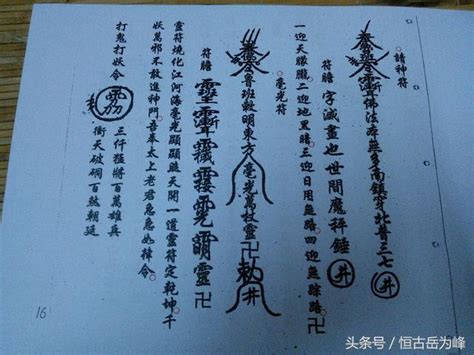 請神符
靈佛法本無多南鎮寧北普三七井
符膽 字滅盡也世間魔秤錘井
一迎天朦朧。二迎地黑暗 三迎日月無路。四迎無蹤路。卍
毫光符
魯班敕明東方毫光萬枝靈卍敕井
符膽 靈 卍
靈符燒化江河海毫光顯顯照天開一道靈符定乾坤千
妖萬邪不敢進神門。吾奉太上老君急急如律令。
打鬼打妖令
三仟猛將百萬雄兵
衝天破硐百煞朝廷
16
头条号 / 恒古岳为峰